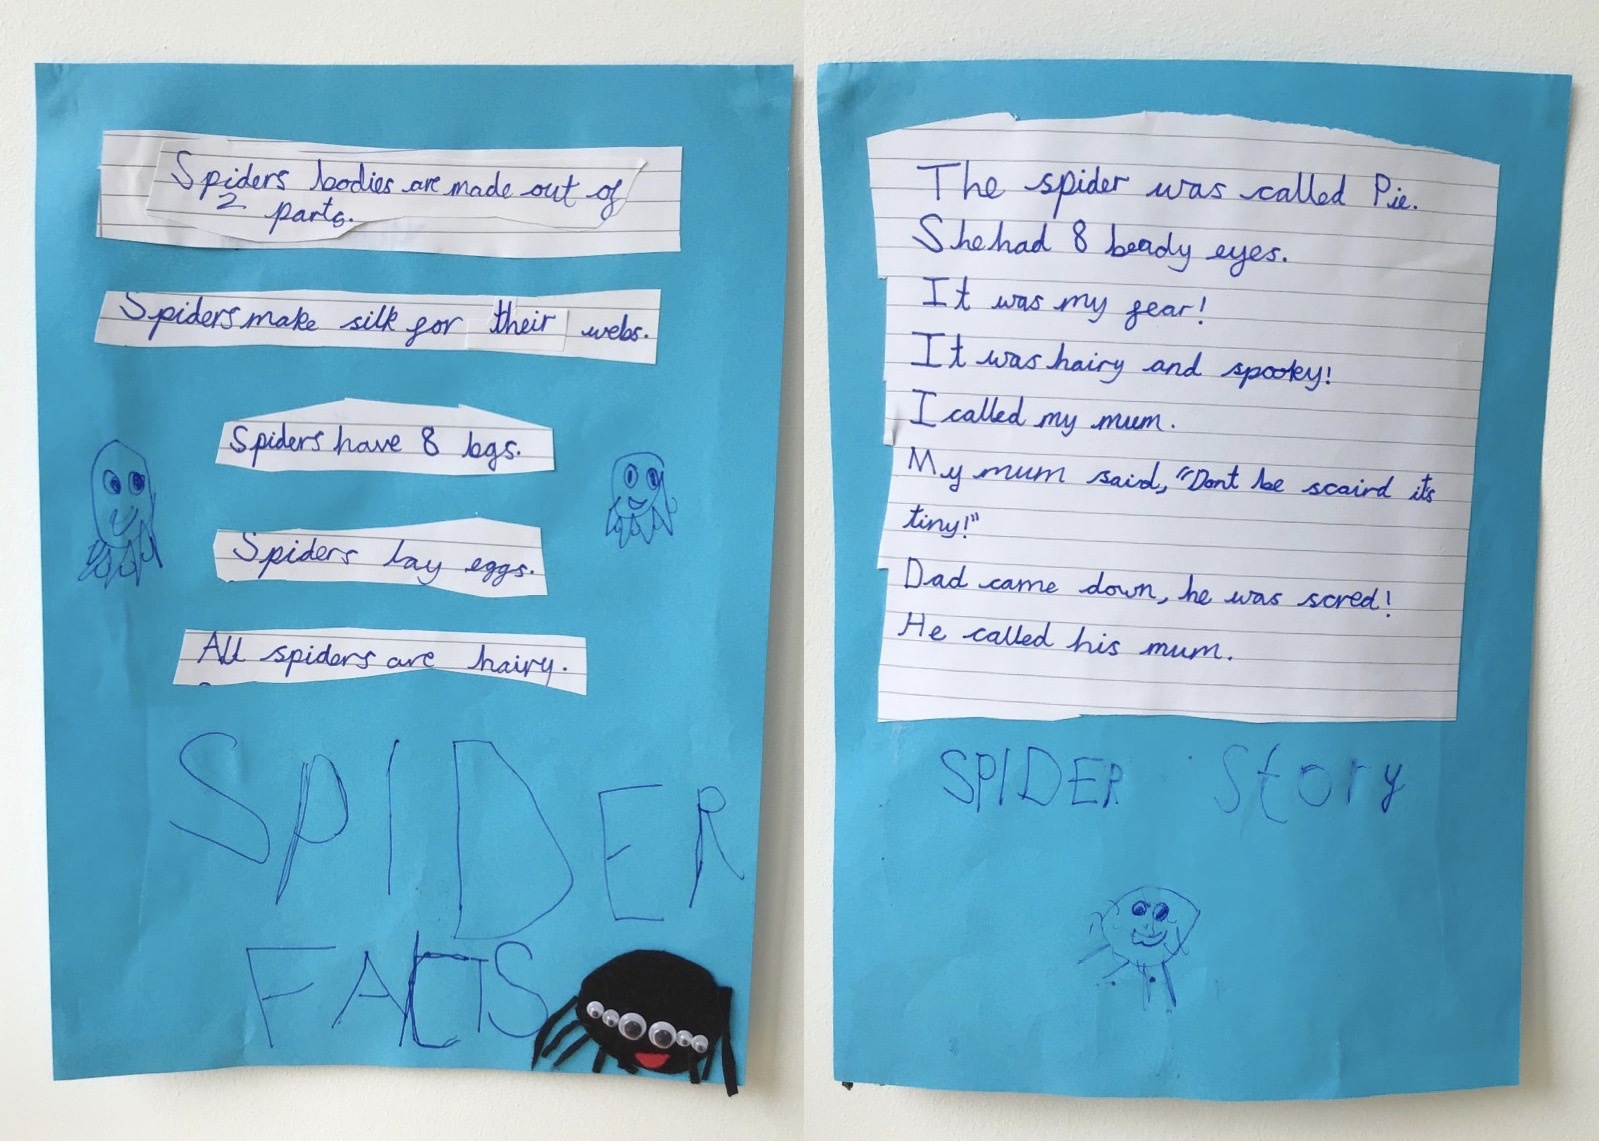 Spiders bodies are made out of
2 parts.
Spiders make silk for their webs.
Spiders have 8 legs.
Spiders lay eggs.
All spiders are hairy.
SPIDER
FACTS
The spider was called Pie.
She had 8 beady eyes.
It was my fear!
It was hairy and spooky!
I called my mum.
My mum said, "Dont be scaird it's
tiny!"
Dad came down, he was scred!
He called his mum.
SPIDER Story